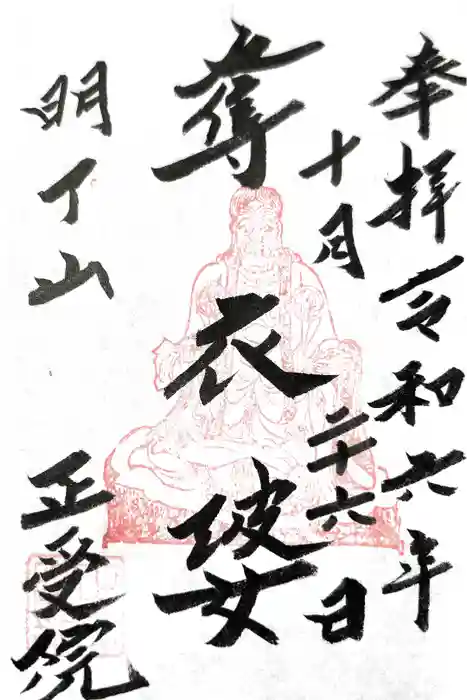 奉拝 令和六年
十月二十六日
奪衣婆
明了山
正受院